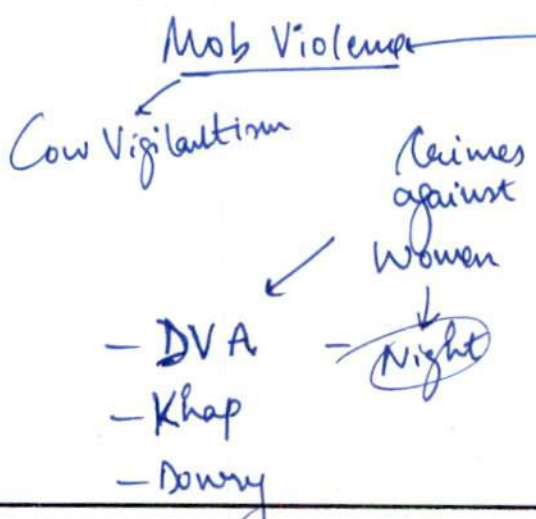 Mob Violence
Cow Vigilantism
Crimes
against
Women
- DVA
- Night
- Khap
- Dowry